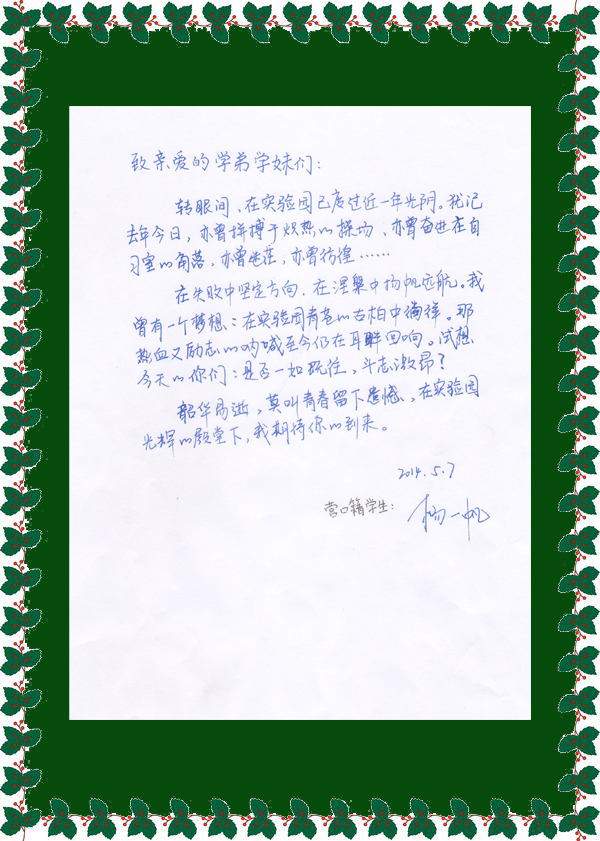 致亲爱的学弟学妹们：
转眼间、在实验园已度过近一年光阴。犹记
去年今日，亦曾拼搏于炽热的操场、亦曾奋进在自
习室的角落，亦曾迷茫，亦曾彷徨……
在失败中坚定方向，在涅槃中扬帆远航。我
曾有一个梦想：在实验园青苍的古柏中徜徉。那
热血又励志的呐喊至今仍在耳畔回响。试想
今天的你们：是否一如既往，斗志激昂？
韶华易逝，莫叫青春留下遗憾、在实验园
光辉的殿堂下，我期待你的到来。
2014.5.7
营口籍学生：杨一帆